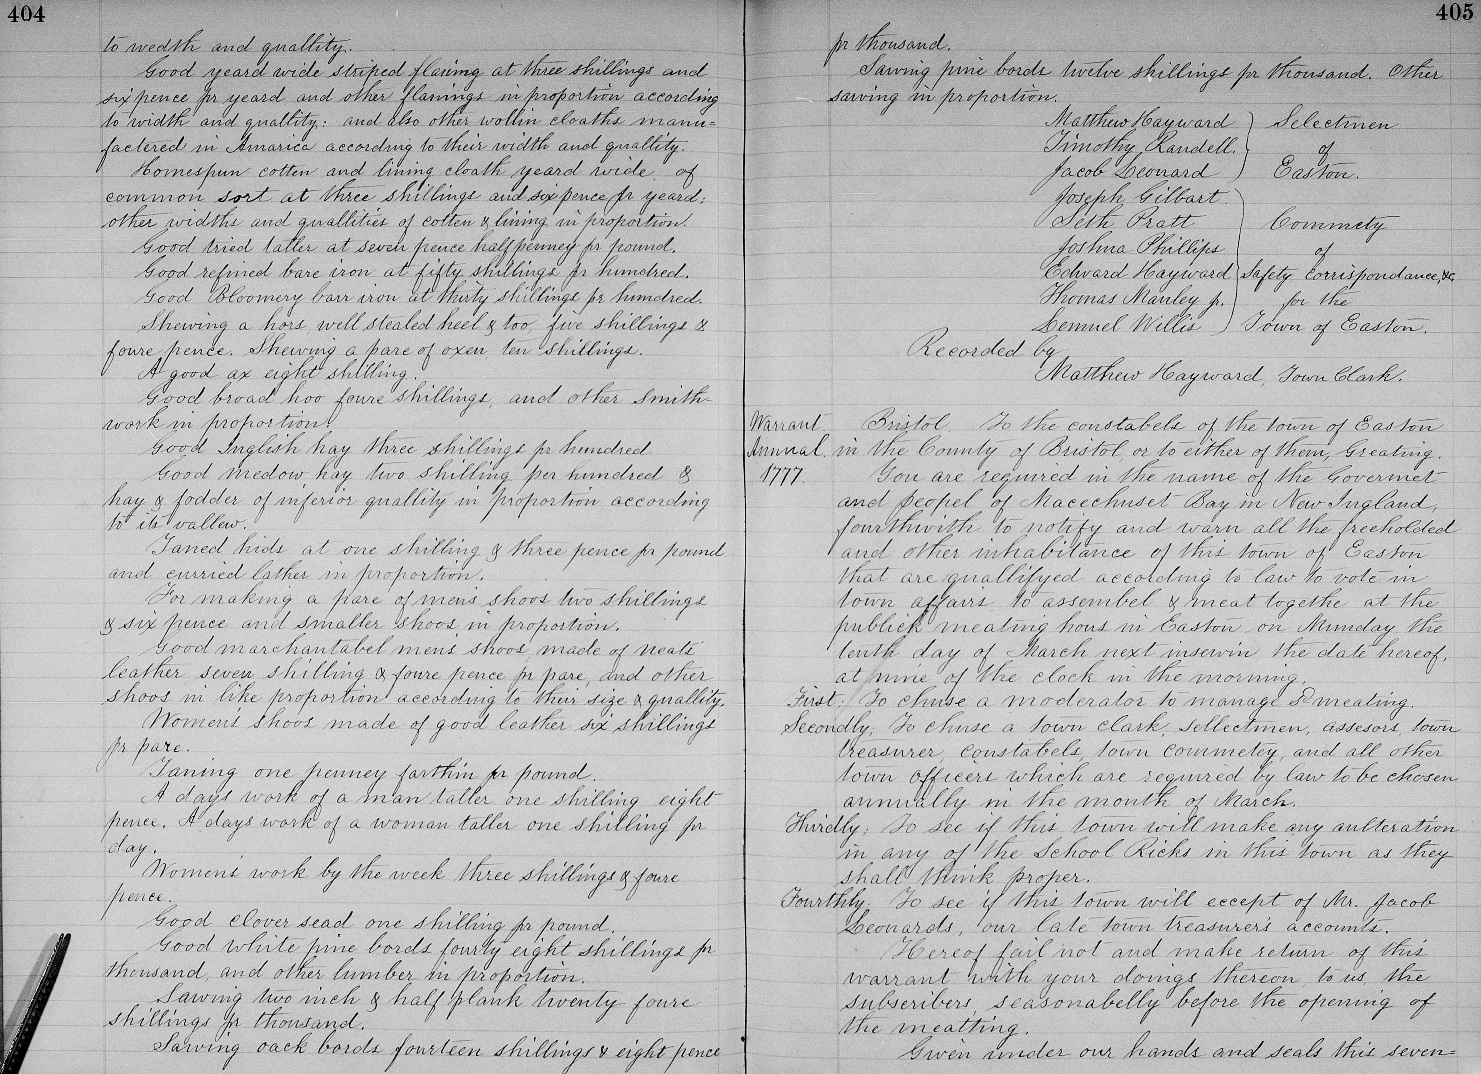 404
to wedth and quallity.
Good yeard wide striped flaning at three shillings and
six pence pr yeard and other flanings in proportion according
to width and quallity: and also other wollin cloaths manu=
factered in Amarica according to their width and quallity.
Homespun cotten and lining cloath yeard wide, of
common sort at three shillings and six pence pr yeard;
other widths and quallities of cotten & lining in proportion.
Good tried taller at seven pence half penney pr pound.
Good refined bare iron at fifty shillings pr hundred.
Good Bloomery barr iron at thirty shillings pr hundred.
Shewing a hors, well stealed heel & too, five shillings &
foure pence. Shewing a pare of oxen, ten shillings.
A good ax eight shilling.
Good broad hoo foure shillings, and other Smith-
work in proportion.
Good Inglish hay three shillings pr hundred
Good medow hay two shilling per hundred &
hay & fodder of inferior quallity in proportion according
to its vallew.
Taned hids at one shilling & three pence pr pound
and curried lather in proportion.
For making a pare of mens shoos two shillings
& six pence and smaller shoos in proportion.
Good marchantabel men's shoos made of neats
leather seven shilling & foure pence pr pare, and other
shoos in like proportion according to their size & quallity.
Womens shoos made of good leather six shillings
pr pare.
Taning one penney farthin pr pound.
A days work of a man taller one shilling eight
pence. A days work of a woman taller one shilling pr
day.
Women's work by the week three shillings & foure
pence.
Good clover sead one shilling pr pound.
Good white pine bords fourty eight shillings pr
thousand, and other lumber in proportion.
Sawing two inch & half plank twenty foure
shillings pr thousand.
Sawing oack bords fourteen shillings & eight pence
405
pr thousand.
Sawing pine bords twelve shillings pr thousand. Other
sawing in proportion.
Matthew Hayward
Timothy Randell.
Jacob Leonard
Selectmen
of
Easton.
Joseph Gilbart.
Seth Pratt
Joshua Phillips
Edward Hayward
Thomas Manley jr.
Lemuel Willis
Commety
of
Safety Corrispondance, &c
for the
Town of Easton.
Recorded by
Matthew Hayward, Town Clark.
Warrant
Annual.
1777.
Bristol. To the constabels of the town of Easton
in the County of Bristol, or to either of them, Greating.
You are required in the name of the Govermet
and peopel of Macechuset Bay in New Ingland,
fourthwith to notify and warn all the freeholded
and other inhabitance of this town of Easton
that are quallifyed according to law to vote in
town affairs, to assembel & meat togethe at the
publick meating hous in Easton on Munday the
tenth day of March next insewin the date hereof,
at nine of the clock in the morning.
First; To chuse a moderator to manage sd meating.
Secondly; To chuse a town clark, sellectmen, assesors, town
treasurer, constabels, town commetey, and all other
town officers which are required by law to be chosen
annually in the month of March.
Thirdly; To see if this town will make any aulteration
in any of the School Ricks in this town as they
shall think proper.
Fourthly; To see if this town will eccept of Mr. Jacob
Leonards, our late town treasurer's accounts.
Hereof fail not and make return of this
warrant with your doings thereon to us, the
subscribers, seasonabelly before the opening of
the meatting.
Given under our hands and seals this seven=